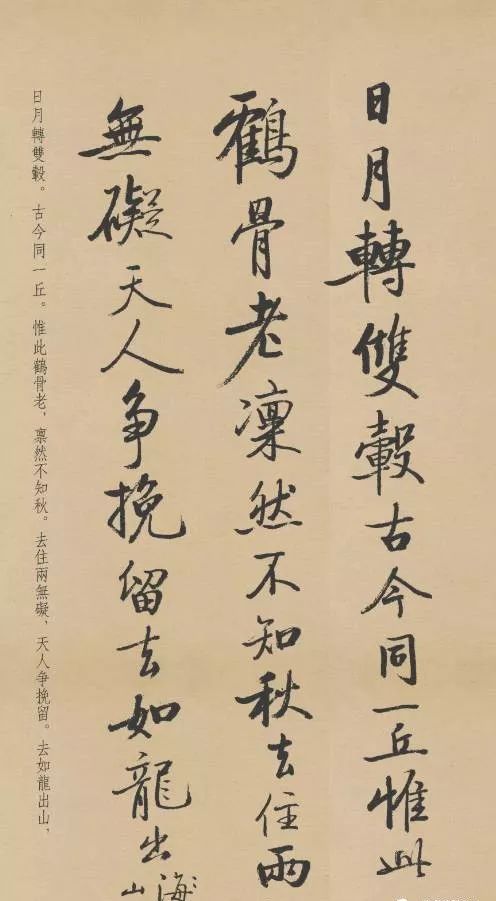 日月轉雙轂古今同一丘惟此
鶴骨老凜然不知秋去住兩
無礙天人爭挽留去如龍出山
海
日月轉雙轂。古今同一丘。惟此鶴骨老，凛然不知秋。去住兩無礙，天人爭挽留。去如龍出山，